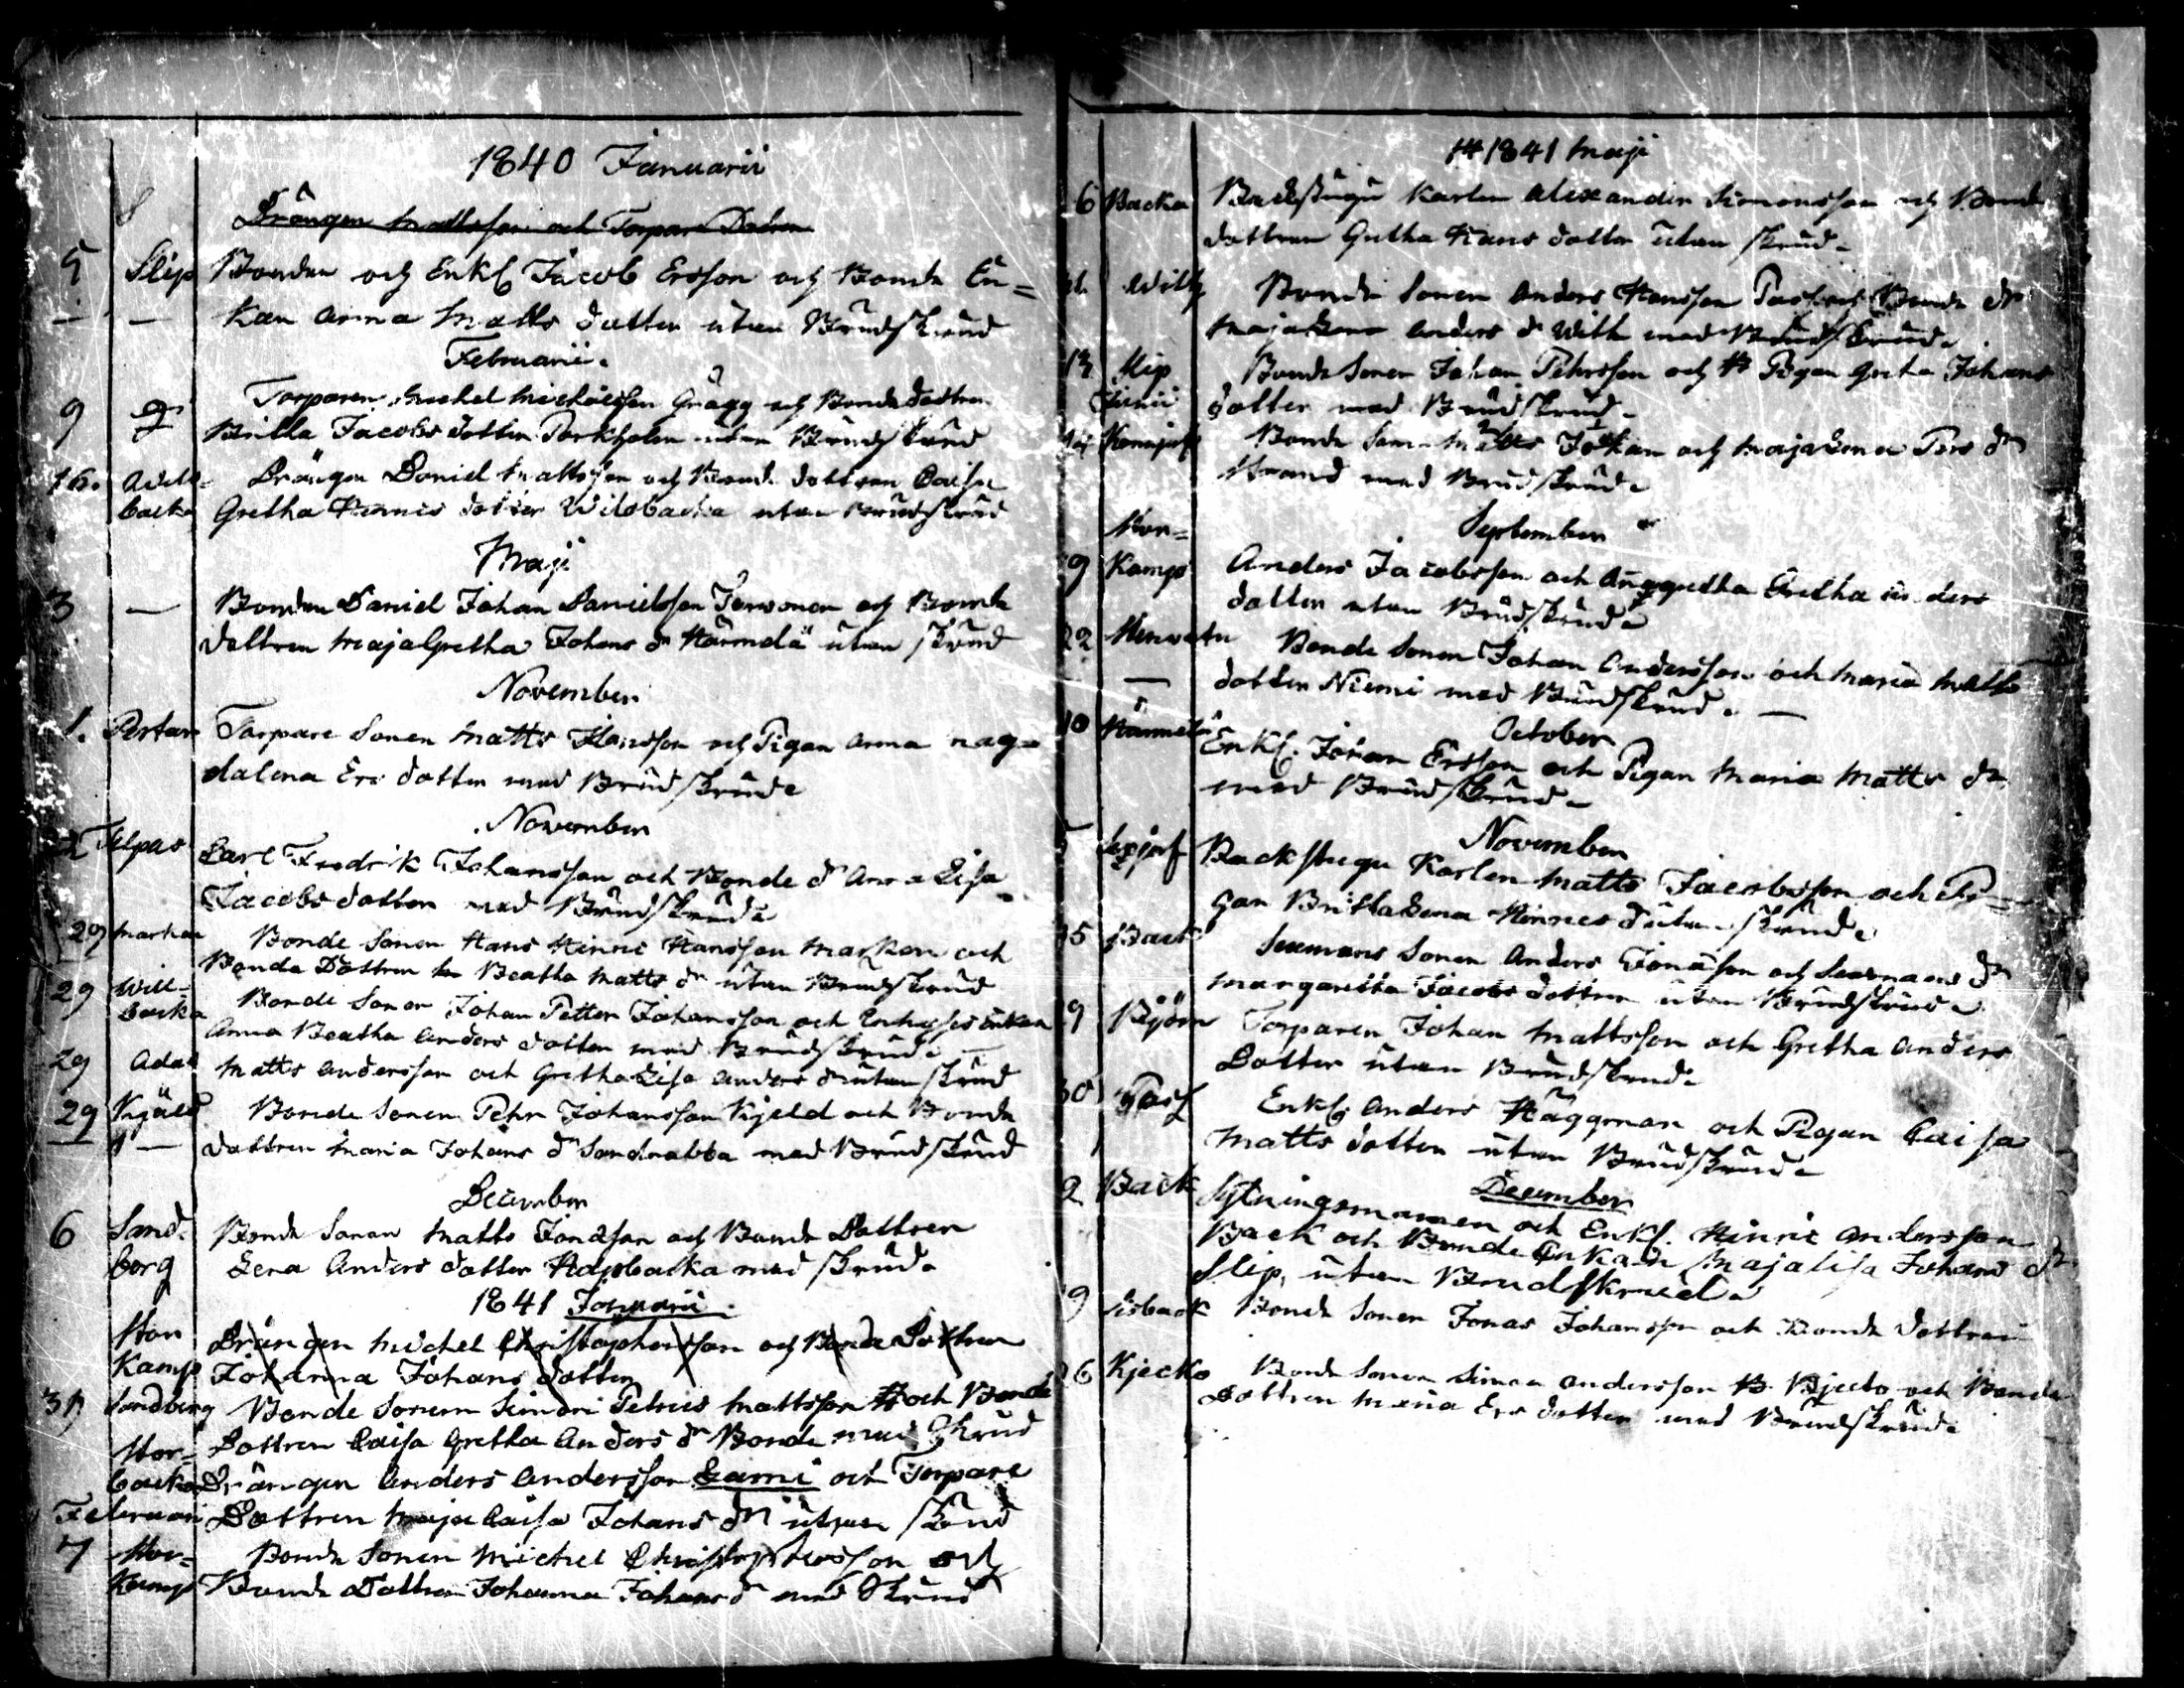 1840 Januarii
Drängen Mattsson och Torpare Dottren
5 Slip Bonden och Enkl. Jacob Ersson och Bonde En=
— — kan Anna Matts dotter utan Brudskrud
Februarii.
Torparen Michel Michelsson Grägg och Bonde dottren
9 Britta Jacobs dotter Porkholm utan Brudskrud
16. Will= Drängen Daniel Mattsson och Bonde dottren Caisa
backa Gretha Hinrics dotter Wilbacka utan Brudskrud
Maji
3 — Bonden Daniel Johan Danielsson och Bonde
dottren Maja Gretha Johans dr Härmälä utan skrud
November
1. Torpare Sonen Matts Hansson och Pigan Anna Mag=
dalena Ers dotter med Brudskrud
November
Carl Fredrik Johansson och Bonde dr Anna Lisa
Jacobs dotter med Brudskrud
29 Markan Bonde Sonen Hans Hinric Hansson Markan och
Bonde Dottren Beatha Matts dr utan Brudskrud
29 Will= Bonde Sonen Johan Petter Johansson och Enkan
backa Anna Beatha Anders dotter med Brudskrud
29 Matts Andersson och Gretha Lisa Anders dr utan skrud
29 Kjäld Bonde Sonen Pehr Johansson Kjeld och Bonde
dottren Maria Johans dr Sandnabba med Brudskrud
December
6 Sand= Bonde Sonen Matts Jonasson och Bonde Dottren
berg Lena Anders dotter med skrud
1841 Januarii.
Stor Drängen Michel Christophersson och Bonde Dottren
Kamp Johanna Johans dotter
31 Sandberg Bonde Sonen Simon Petrus Mattsson och Bonde
Stor= Dottren Caisa Gretha Anders dr Bonde med Skrud
backa Drängen Anders Andersson Lami och Torpare
Februari Dottren Maja Caisa Johans dr utan skrud
7 Stor= Bonde Sonen Michel Christophersson och
Kamp Bonde Dottren Johanna Johans dr med Skrud
1841 Maji
6 Backa Backstugu Karlen Alexander Simonsson och Bonde
dottren Gretha Hans dotter utan skrud
Bonde Sonen Anders Hansson och Bonde dr
Maja Lena Anders dr Will med Brudskrud
13 Slip Bonde Sonen Johan Pehrsson och Pigan Greta Johans
Junii dotter med Brudskrud
14 Bonde Son Matts Johan och Maja Lena Pers dr
Strand med Brudskrud
September
Stor=
9 Kamp Anders Jacobsson och Gretha Anders
dotter utan Brudskrud
22 Bonde Sonen Johan Andersson och Maria Matts
— dotter Niemi med Brudskrud. —
October
10 Härmälä Enkl. Johan Ersson och Pigan Maria Matts dr
med Brudskrud
November
Backstugu Karlen Matts Jacobsson och Pi=
gan Britta Lena Hinrics dr utan skrud
Back Sonen Anders Jonasson och dr
Margaretha Jacobs dotter utan Brudskrud
9 Björn Torparen Johan Mattsson och Gretha Anders
Dotter utan Brudskrud
30 Enkl. Anders Häggman och Pigan Caisa
Matts dotter utan Brudskrud
December
2 Back Sytningsmannen och Enkl. Hinric Andersson
Back och Bonde Enkan Maja Lisa Johans dr
Slip, utan Brudskrud
9 Bonde Sonen Jonas Johansson och Bonde dottren
26 Kjecko Bonde Sonen Simon Andersson Kjecko och Bonde
Dottren Maria Ers dotter med Brudskrud